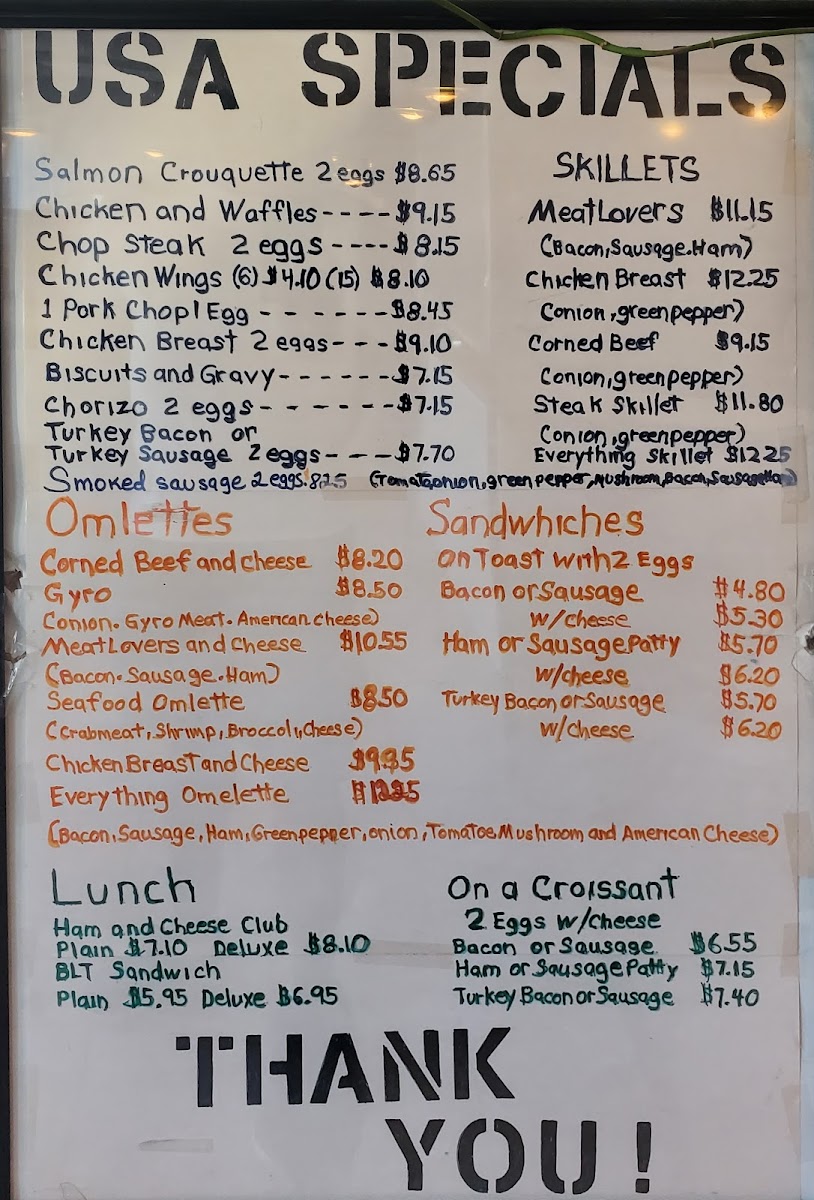 USA SPECIALS
Salmon Crouquette 2 eggs $8.65
Chicken and Waffles----$9.15
Chop Steak 2 eggs ----$8.15
Chicken Wings (6) $4.10 (15) $8.10
1 Pork Chop 1 Egg ------$8.45
Chicken Breast 2 eggs---$9.10
Biscuits and Gravy-------$7.15
Chorizo 2 eggs-------$7.15
Turkey Bacon or
Turkey Sausage 2 eggs---$7.70
Smoked sausage 2 eggs. 8.25
SKILLETS
Meat Lovers $11.15
(Bacon, Sausage. Ham)
Chicken Breast $12.25
(onion, green pepper)
Corned Beef $9.15
(onion, green pepper)
Steak Skillet $11.80
(onion, green pepper)
Everything Skillet $12.25
(Tomato, onion, green pepper, Mushroom, Bacon, Sausage, Ham)
Omlettes
Corned Beef and Cheese $8.20
Gyro $8.50
(onion. Gyro Meat. American cheese)
Meat Lovers and Cheese $10.55
(Bacon. Sausage. Ham)
Seafood Omlette $8.50
(Crabmeat, Shrimp, Broccoli, Cheese)
Chicken Breast and Cheese
Everything Omelette
(Bacon, Sausage, Ham, Green pepper, onion, Tomatoe, Mushroom and American Cheese)
Sandwhiches
On Toast with 2 Eggs
Bacon or Sausage $4.80
w/cheese $5.30
Ham or Sausage Patty $5.70
w/cheese $6.20
Turkey Bacon or Sausage $5.70
w/cheese $6.20
Lunch
Ham and Cheese Club
Plain $7.10 Deluxe $8.10
BLT Sandwich
Plain $5.95 Deluxe $6.95
On a Croissant
2 Eggs w/cheese
Bacon or Sausage $6.55
Ham or Sausage Patty $7.15
Turkey Bacon or Sausage $7.40
THANK
YOU!